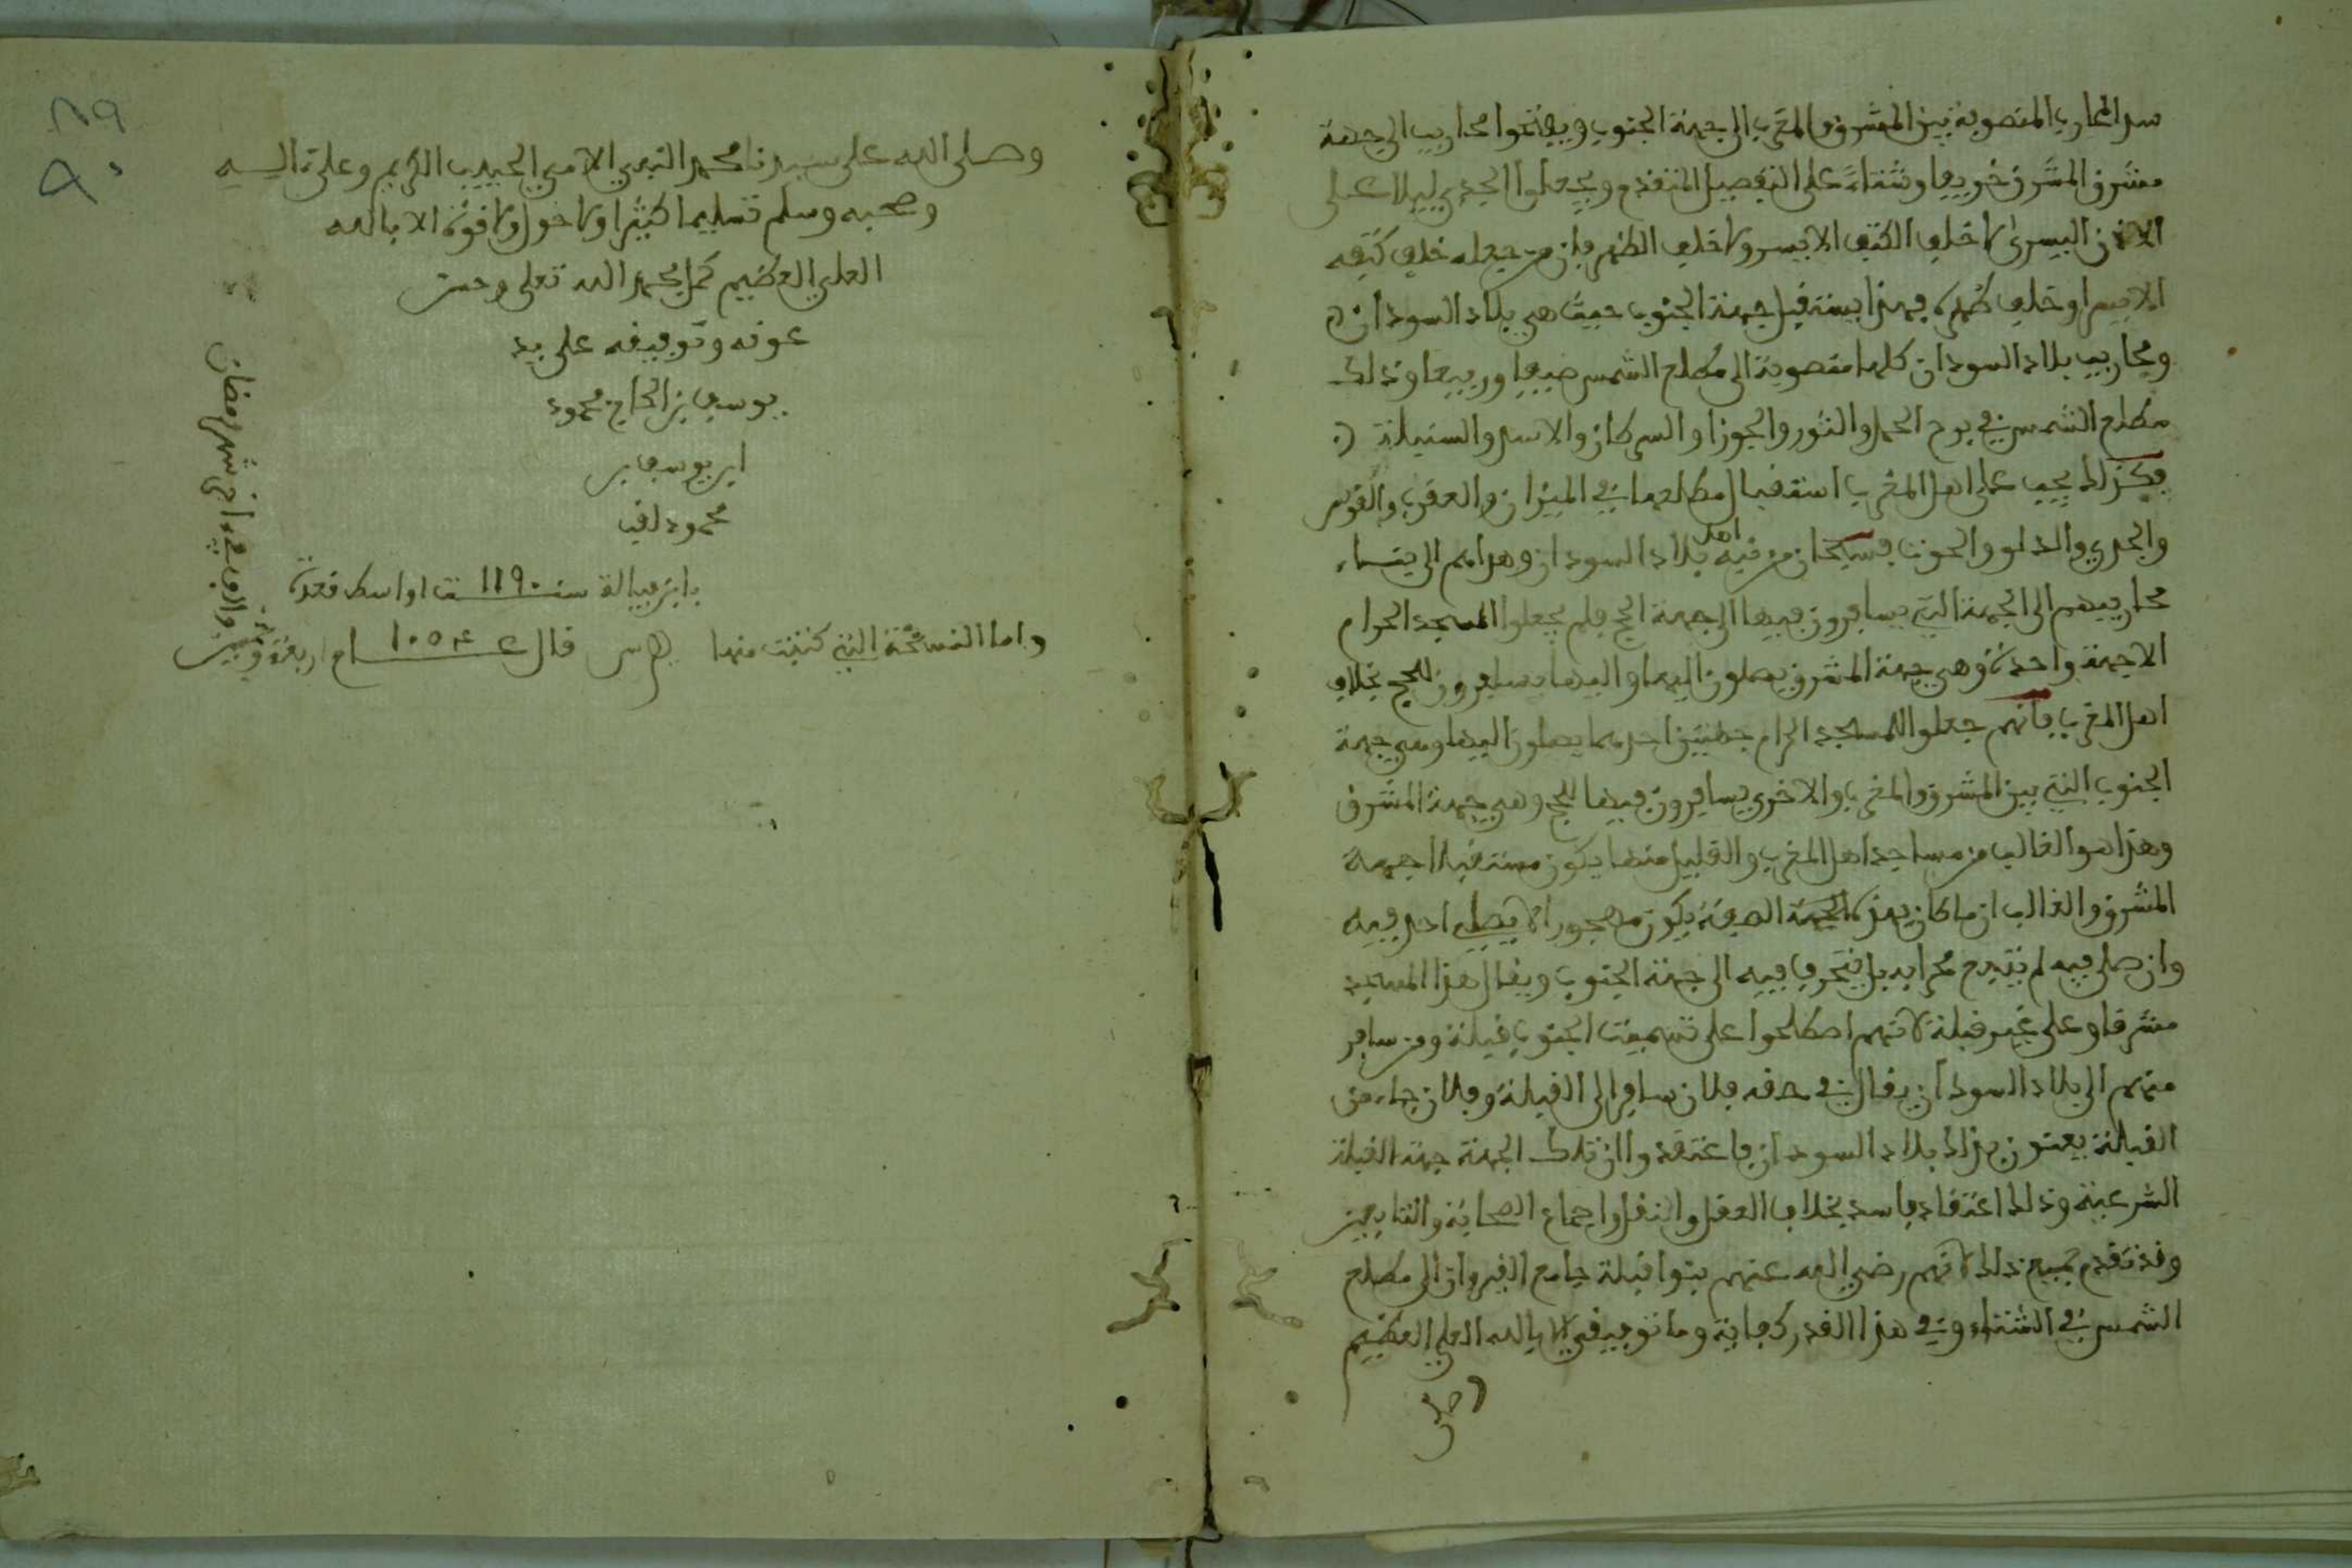 سد المحاريب المنصوبة بين المشرق والمغرب الى جهة الجنوب ويفتحوا محاريب الى جهة
مشرق الشمس خريفا وشتاء على التفصيل المتقدم ويجعلوا الجدي ليلا على
الاذن اليسرى لا خلف الكتف الايسر ولا خلف الظهر فإن من جعله خلف كتفه
الايسر او خلف ظهره فهذا يستقبل جهة الجنوب حيث هي بلاد السودان
ومحاريب بلاد السودان كلها منصوبة الى مطلع الشمس صيفا وربيعا وذلك
مطلع الشمس في برج الحمل والثور والجوزا والسرطان والاسد والسنبلة
فكذلك يجب على اهل المغرب استقبال مطلعها في الميزان والعقرب والقوس
والجدي والدلو والحوت فسبحان من نبه اهل بلاد السودان وهداهم الى بناء
محاريبهم الى الجهة التي يسافرون فيها الى جهة الحج فلم يجعلوا المسجد الحرام
الا جهة واحدة وهي جهة المشرق يصلون اليها واليها يسافرون للحج بخلاف
اهل المغرب فانهم جعلوا للمسجد الحرام جهتين احدهما يصلون اليها وهي جهة
الجنوب التي بين المشرق والمغرب والاخرى يسافرون فيها للحج وهي جهة المشرق
وهذا هو الغالب من مساجد اهل المغرب والقليل منها يكون مستقبلا جهة
المشرق والغالب ان ما كان بهذه الجهة الصفة يكون مهجورا لا يصلي احد فيه
وان صلى فيه لم يتبع محرابه بل ينحرف فيه الى جهة الجنوب ويقال هذا المسجد
مشرقا وعلى غير قبلة لانهم اصطلحوا على تسميت الجنوب قبلة ومن سافر
منهم الى بلاد السودان يقال في حقه فلان سافر الى القبلة وفلان جاء من
القبلة يعنون بذلك بلاد السودان فاعتقدوا ان تلك الجهة جهة القبلة
الشرعية وذلك اعتقاد فاسد بخلاف العقل والنقل واجماع الصحابة والتابعين
وقد تقدم جميع ذلك لانهم رضي الله عنهم بنوا قبلة جامع القيروان الى مطلع
الشمس في الشتاء وفي هذا القدر كفاية وما توفيقي الا بالله العلي العظيم
وصلى
وصلى الله على سيدنا محمد النبي الامي الحبيب الكريم وعلى اله
وصحبه وسلم تسليما كثيرا ولا حول ولا قوة الا بالله
العلي العظيم كمل بحمد الله تعلى وحسن
عونه وتوفيقه على يد
يوسف بن الحاج محمود
ابن يوسف بن
محمود
سنة 1190 اواسط قعدة
واما النسخة التي كتبت منها قال 1054 عام اربعة
وخمسين والف في اخر شهر رمضان
٨٩
٩٠